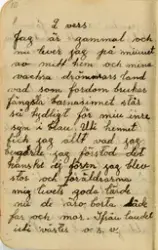 2 vers.
Jag är gammal och
nu lever jag på minnet
av mitt hem och mina
vackra drömmars land
vad som fordom
fängsla barnasinnet står
så tydligt för min inre
syn i blau. Uti hemmet
fick jag allt vad jag
begärde jag förstod det
kanske ej förrn jag blev
stor och föräldrarna
mig livets goda lärde
nu de äro borta
far och mor.
v. s. v.